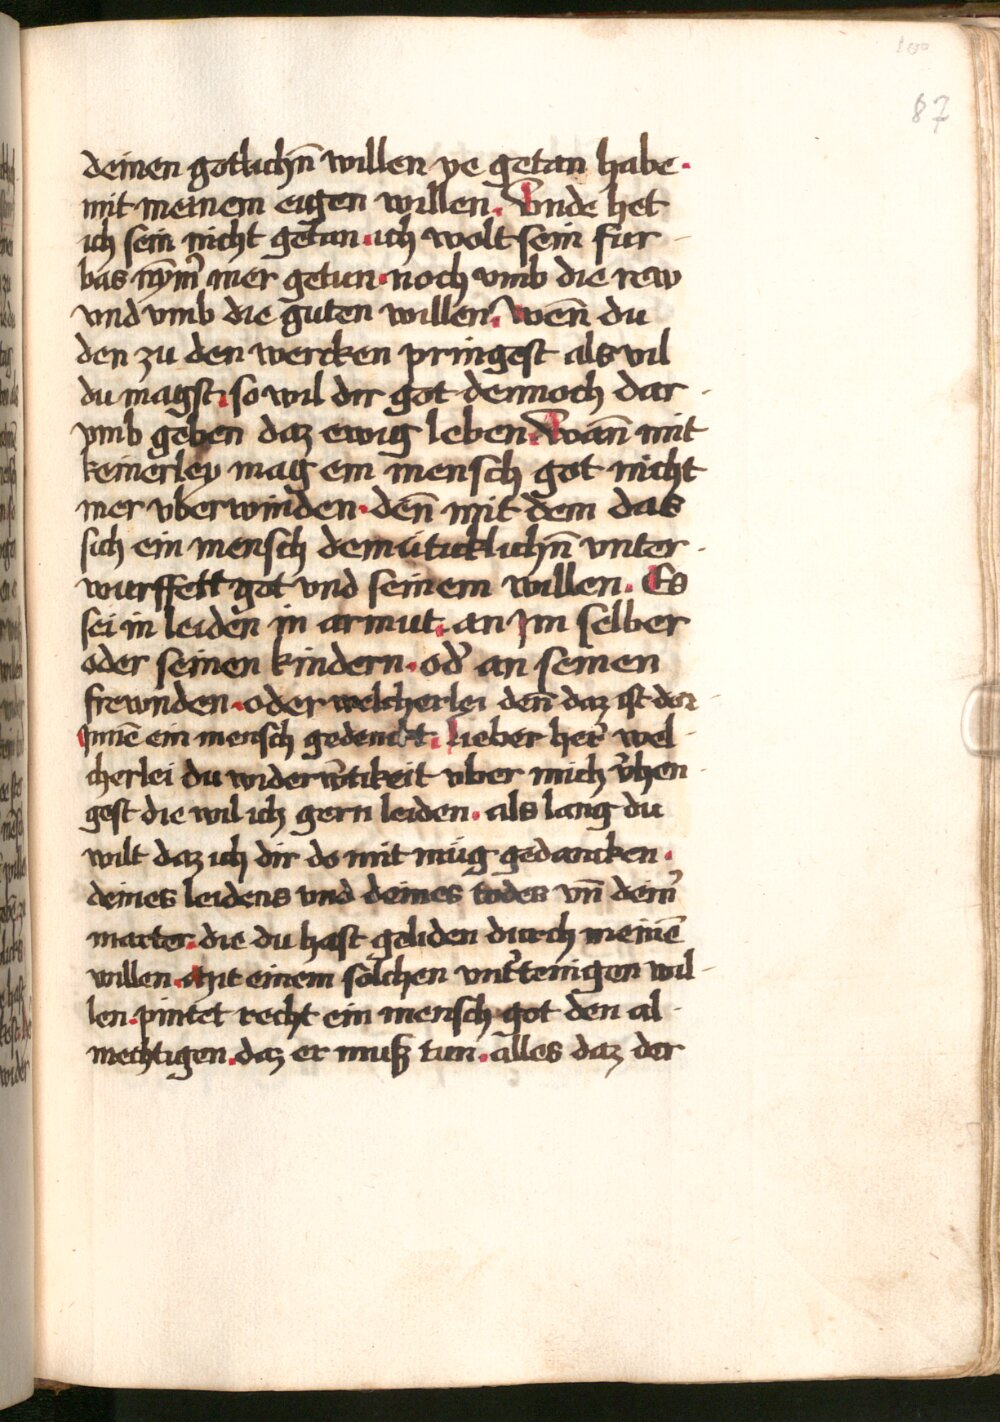 100
87
deinen gotlichn̄ willen ye getan habe.
mit meinem eigen willen. Vnde het
ich sein nicht getan. ich wolt sein fur-
bas nȳm̉ mer getun. noch vmb die rew
vnd vmb die guten willen. wen̄ du
den zu den wercken pringest als vil
du magst. so wil dir got dennoch dar-
vmb geben daz ewig leben. Wann̄ mit
keinerley mag ein mensch got nicht
mer vberwinden. den̄ mit dem das
sich ein mensch demüticklichn̄ vnter-
wurffett got vnd seinem willen. Es
sei in leiden in armut. an Im selber
oder seinen kindern. od̉ an seinen
frewnden. oder welcherlei den̄ daz ist dar
Innē ein mensch gedenckt. lieber her̉ wel-
cherlei du widerw̉tikeit vber mich v̉hen-
gest die wil ich gern leiden. als lang du
wilt daz ich dir do mit müg gedancken.
deines leidens vnd deines todes vn̄ dein̉
marter. die du hast geliden durch meinē
willen. Mit einem solchen vnt̉tenigen wil-
len. pintet recht ein mensch got den al-
mechtigen. daz er muß tun. alles daz der